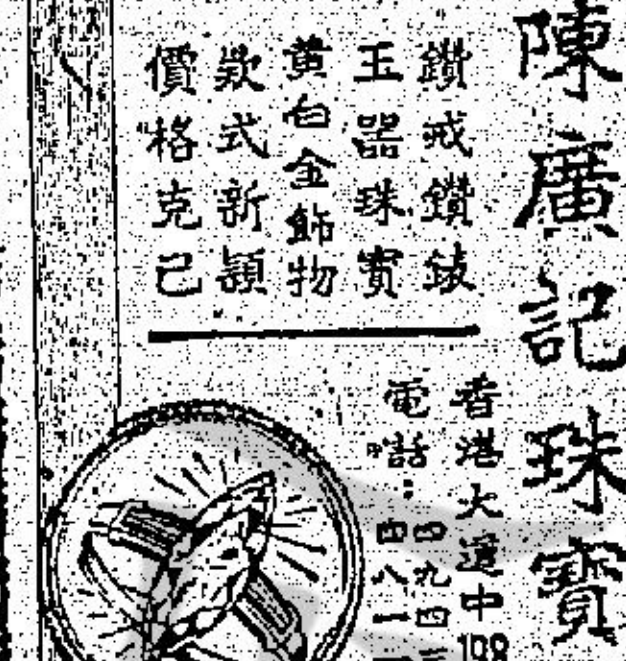 陳廣記珠寶
鑽戒鑽錶
玉器珠寶
黃白金飾物
欵式新穎
價格克己
香港大道中198
電話：四九四
四八一